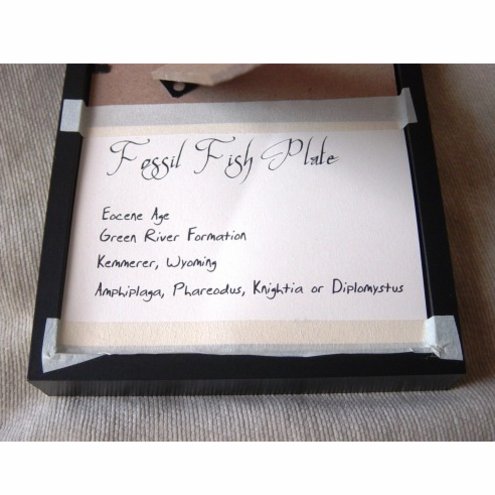 Fossil Fish Plate
Eocene Age
Green River Formation
Kemmerer, Wyoming
Amphiplaga, Phareodus, Knightia or Diplomystus